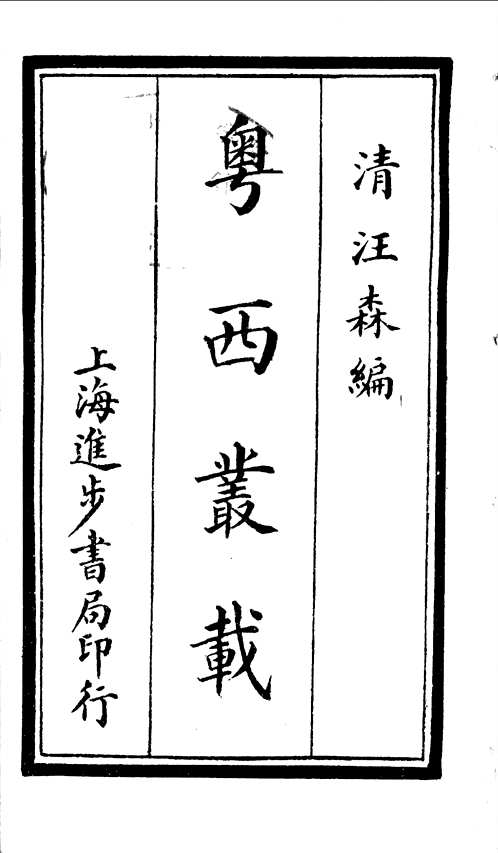 清汪森編
粵西叢載
上海進步書局印行